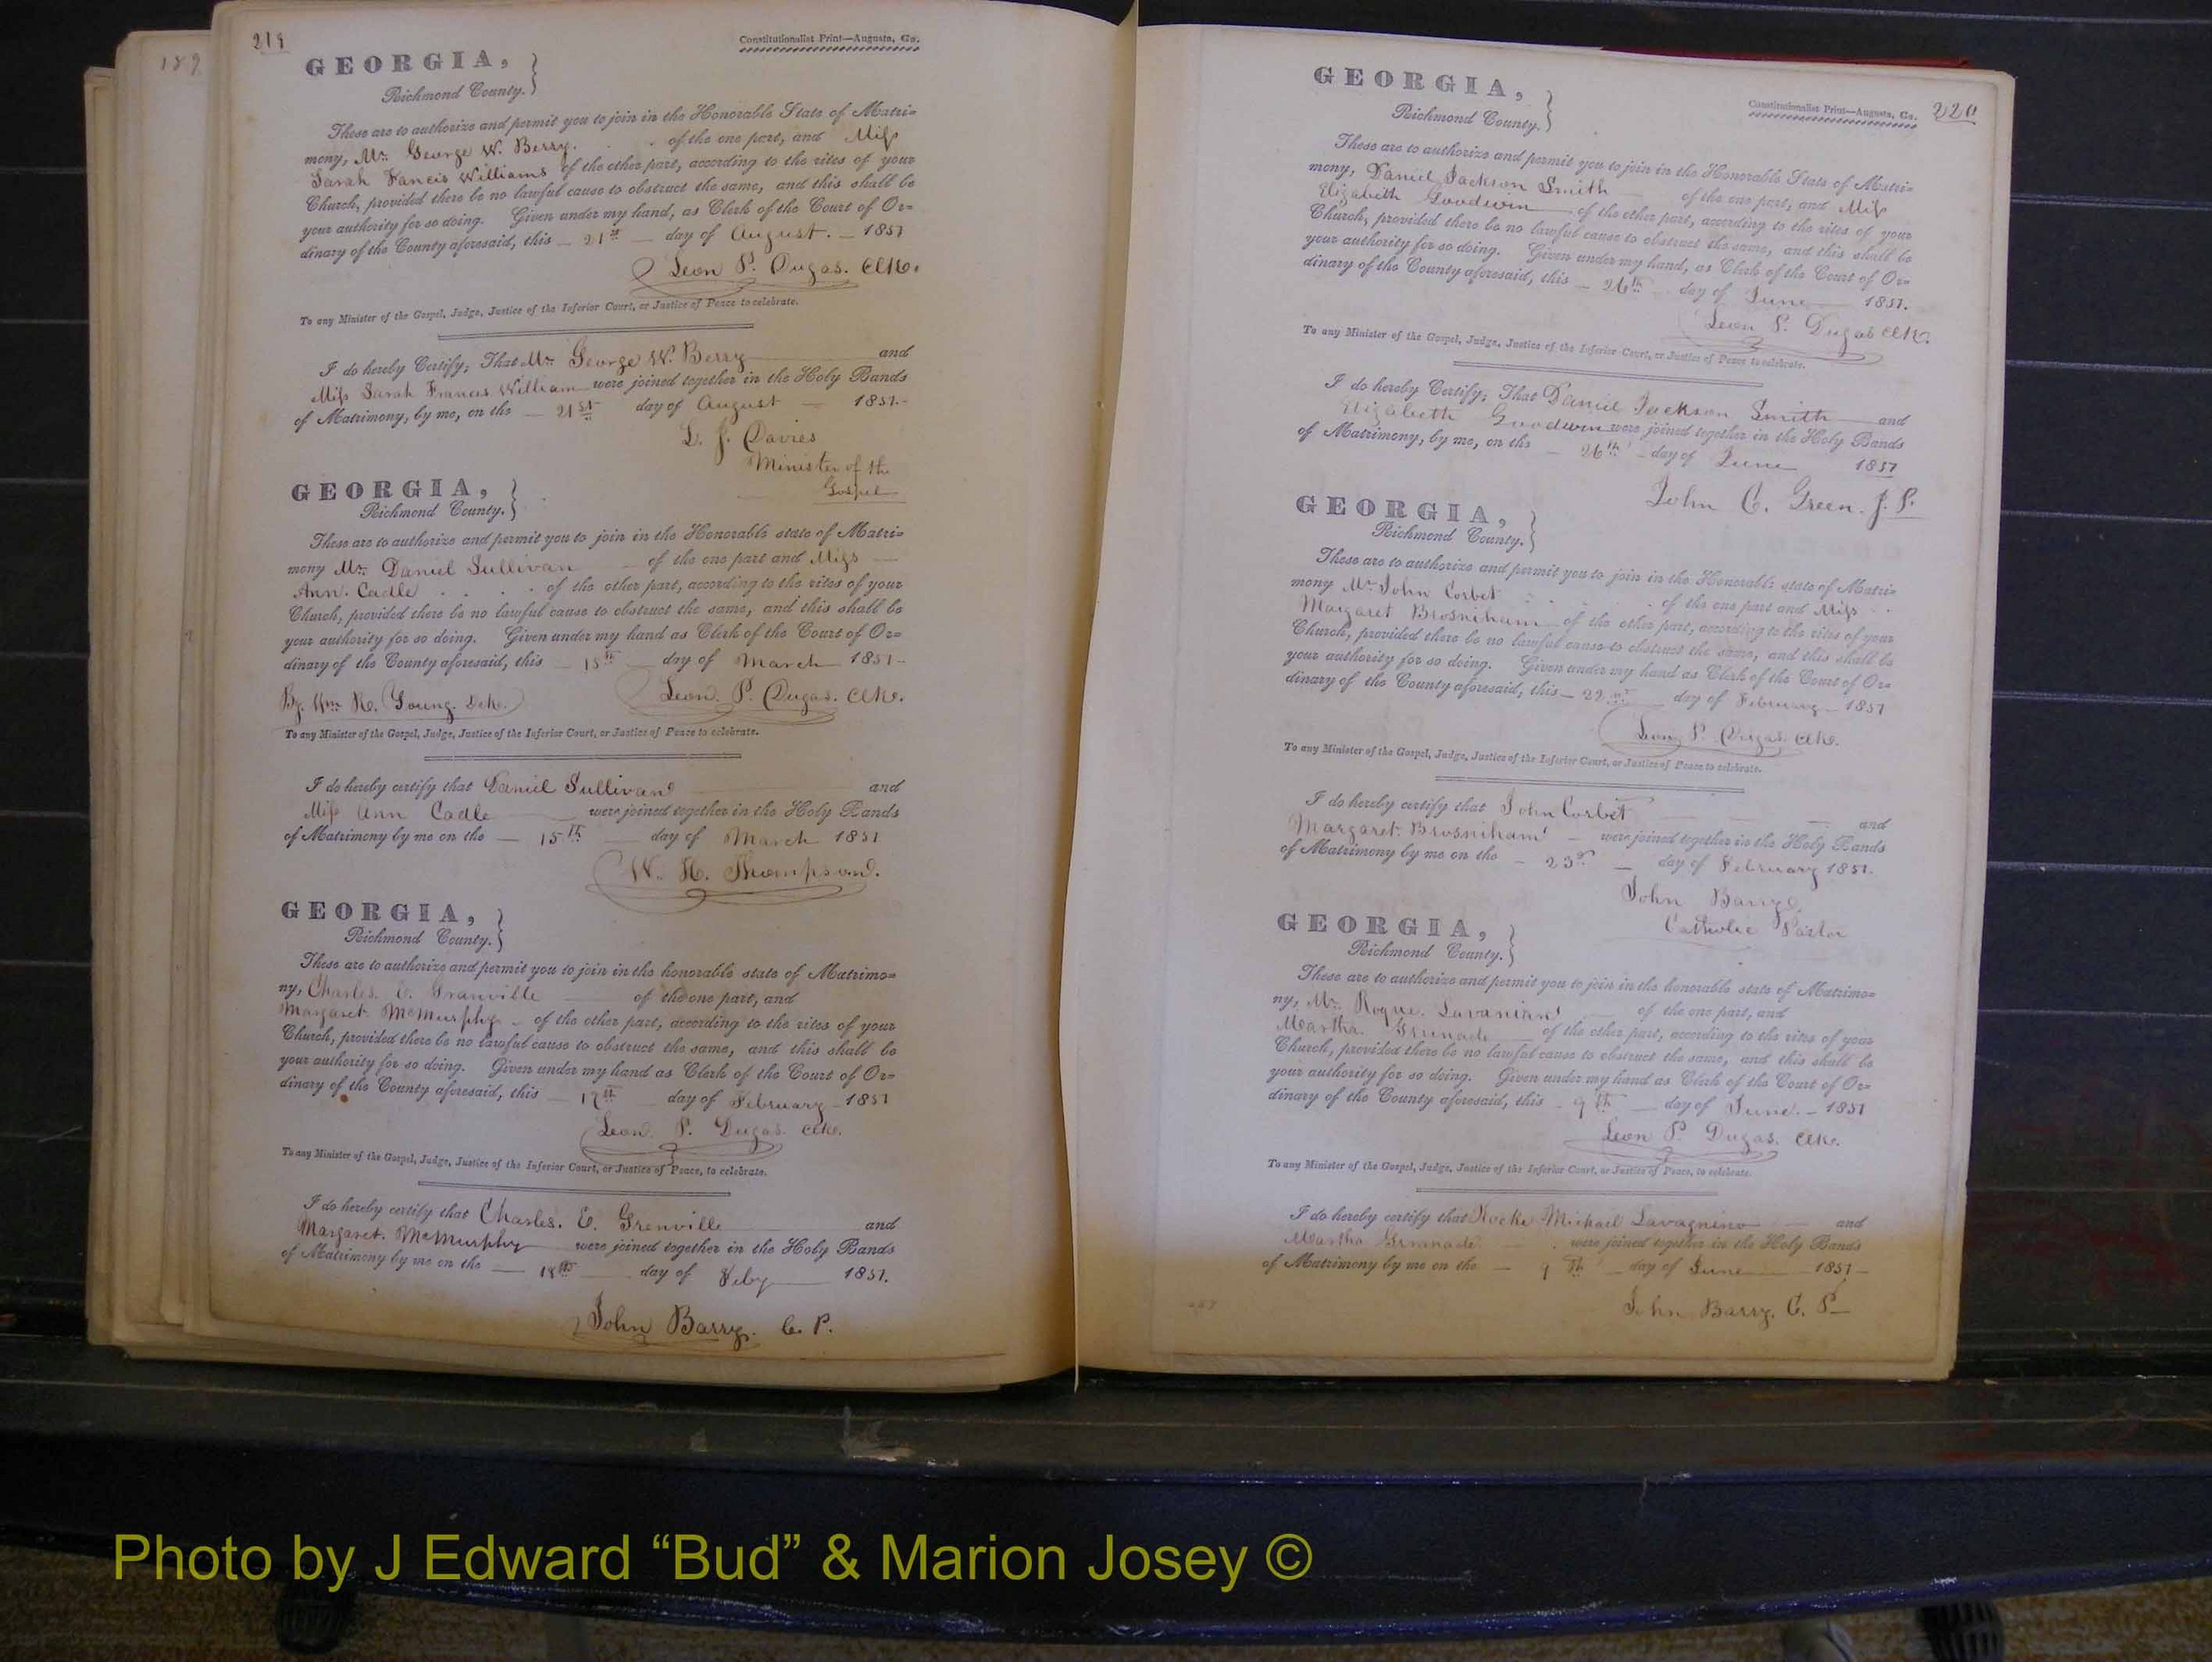 189
219
Constitutionalist Print—Augusta, Ga.
GEORGIA,
Richmond County.
These are to authorize and permit you to join in the Honorable State of Matri=
mony, Mr. George W. Berry. of the one part, and Miss
Sarah Francis Williams of the other part, according to the rites of your
Church, provided there be no lawful cause to obstruct the same, and this shall be
your authority for so doing. Given under my hand, as Clerk of the Court of Or=
dinary of the County aforesaid, this — 21st — day of August. — 1851
Leon P. Dugas. Clk.
To any Minister of the Gospel, Judge, Justice of the Inferior Court, or Justice of Peace to celebrate.
I do hereby Certify; That Mr. George W. Berry and
Miss Sarah Frances William were joined together in the Holy Bands
of Matrimony, by me, on the — 21st day of August — 1851.
L. J. Davies
Minister of the
Gospel
GEORGIA,
Richmond County.
These are to authorize and permit you to join in the Honorable state of Matri=
mony Mr. Daniel Sullivan — of the one part and Miss —
Ann. Cadle . . . . of the other part, according to the rites of your
Church, provided there be no lawful cause to obstruct the same, and this shall be
your authority for so doing. Given under my hand as Clerk of the Court of Or=
dinary of the County aforesaid, this — 15th — day of March 1851
By. Wm R. Young. Dck. Leon. P. Dugas. Clk.
To any Minister of the Gospel, Judge, Justice of the Inferior Court, or Justice of Peace to celebrate.
I do hereby certify that Daniel Sullivan and
Miss Ann Cadle were joined together in the Holy Bands
of Matrimony by me on the — 15th — day of March 1851
W. H. Thompson.
GEORGIA,
Richmond County.
These are to authorize and permit you to join in the honorable state of Matrimo=
ny, Charles. E. Granville of the one part, and
Margaret. McMurphy — of the other part, according to the rites of your
Church, provided there be no lawful cause to obstruct the same, and this shall be
your authority for so doing. Given under my hand as Clerk of the Court of Or=
dinary of the County aforesaid, this — 17th day of February — 1851
Leon. P. Dugas. Clk.
To any Minister of the Gospel, Judge, Justice of the Inferior Court, or Justice of Peace, to celebrate.
I do hereby certify that Charles. E. Grenville and
Margaret. McMurphy were joined together in the Holy Bands
of Matrimony by me on the — 18th day of Feby 1851.
John Barry. C. P.
Constitutionalist Print—Augusta, Ga. 220
GEORGIA,
Richmond County.
These are to authorize and permit you to join in the Honorable State of Matri=
mony, Daniel Jackson Smith of the one part, and Miss
Elizabeth Goodwin of the other part, according to the rites of your
Church, provided there be no lawful cause to obstruct the same, and this shall be
your authority for so doing. Given under my hand, as Clerk of the Court of Or=
dinary of the County aforesaid, this — 26th day of June 1851.
Leon P. Dugas Clk.
To any Minister of the Gospel, Judge, Justice of the Inferior Court, or Justice of Peace to celebrate.
I do hereby Certify; That Daniel Jackson Smith and
Elizabeth Goodwin were joined together in the Holy Bands
of Matrimony, by me, on the — 26th — day of June 1851
John C. Green. J. P.
GEORGIA,
Richmond County.
These are to authorize and permit you to join in the Honorable state of Matri=
mony Mr. John Corbet of the one part and Miss
Margaret Brosniham of the other part, according to the rites of your
Church, provided there be no lawful cause to obstruct the same, and this shall be
your authority for so doing. Given under my hand as Clerk of the Court of Or=
dinary of the County aforesaid, this — 22nd day of February — 1851
Leon P. Dugas. Clk.
To any Minister of the Gospel, Judge, Justice of the Inferior Court, or Justice of Peace to celebrate.
I do hereby certify that John Corbet and
Margaret. Brosniham — were joined together in the Holy Bands
of Matrimony by me on the — 23rd — day of February 1851.
John Barry
Catholic Pastor
GEORGIA,
Richmond County.
These are to authorize and permit you to join in the honorable state of Matrimo=
ny, Mr. Roque. Lavanian of the one part, and
Martha. Grenade of the other part, according to the rites of your
Church, provided there be no lawful cause to obstruct the same, and this shall be
your authority for so doing. Given under my hand as Clerk of the Court of Or=
dinary of the County aforesaid, this — 9th — day of June. — 1851
Leon P. Dugas. Clk.
To any Minister of the Gospel, Judge, Justice of the Inferior Court, or Justice of Peace, to celebrate.
I do hereby certify that Rocke Michael Lavagnino and
Martha Grenade were joined together in the Holy Bands
of Matrimony by me on the — 9th — day of June 1851 —
John Barry. C. P.
Photo by J Edward “Bud” & Marion Josey ©